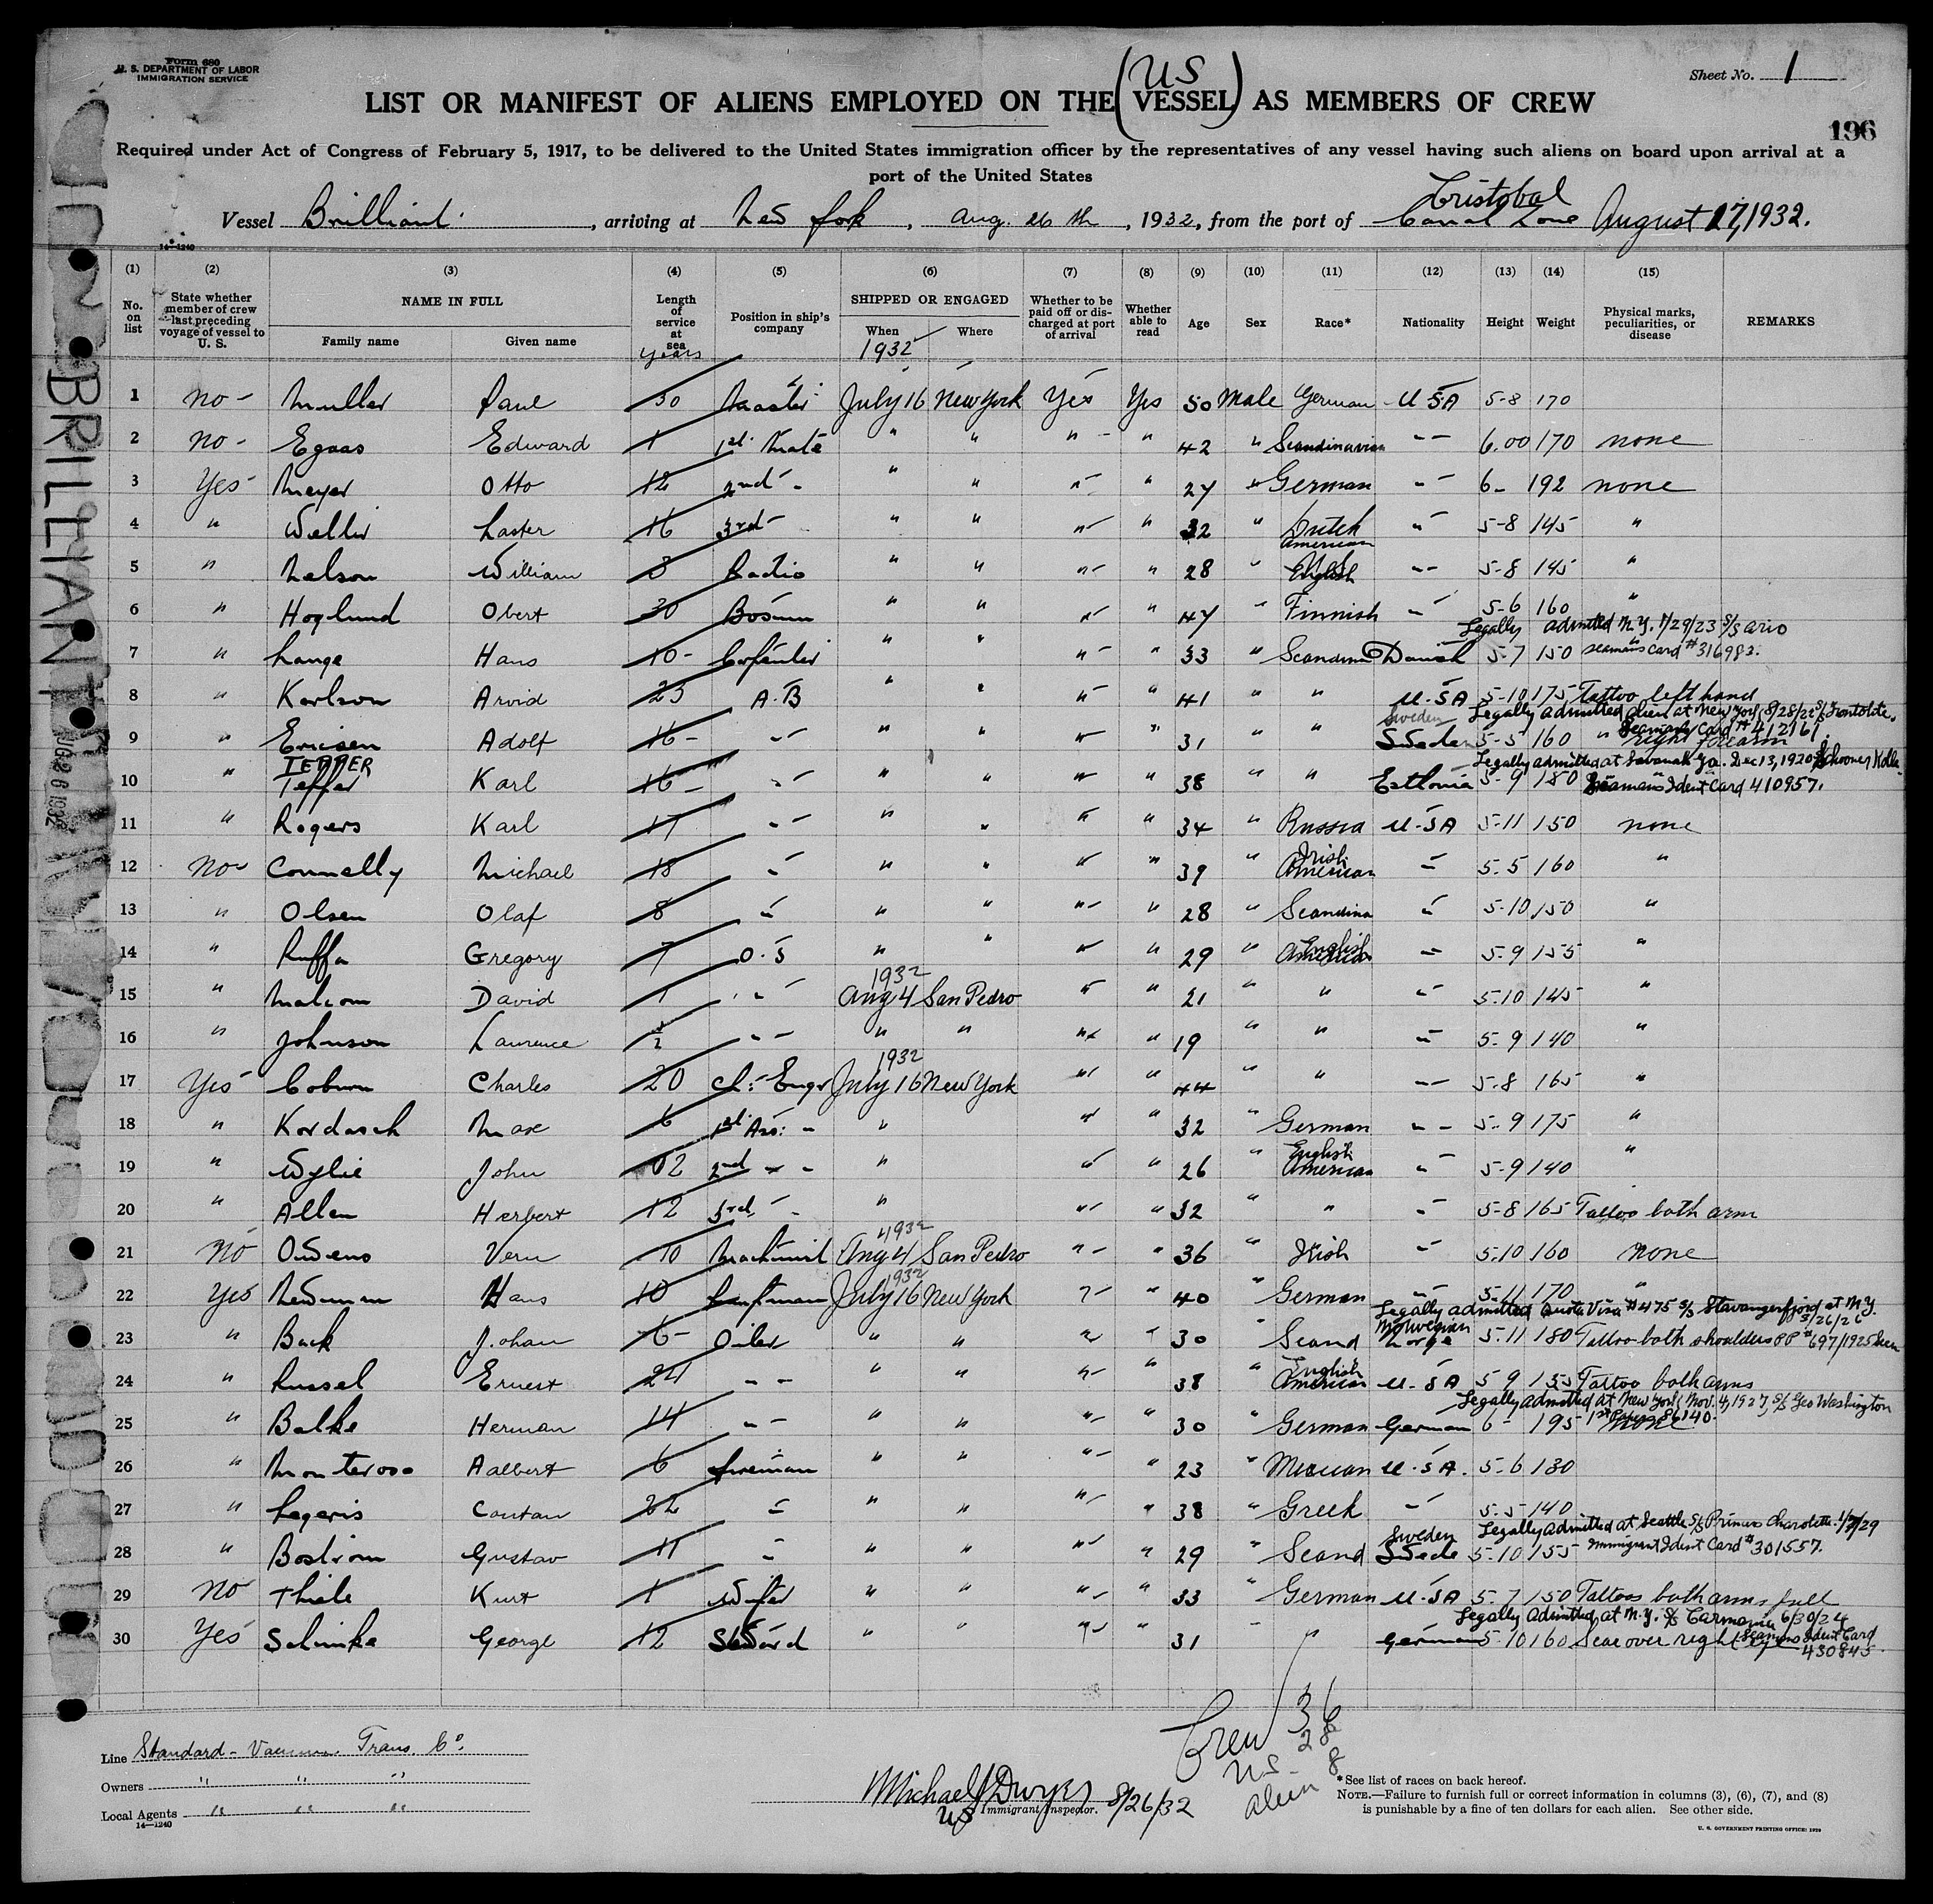 Form 680
U. S. DEPARTMENT OF LABOR
IMMIGRATION SERVICE
Sheet No. 1
(US
LIST OR MANIFEST OF ALIENS EMPLOYED ON THE VESSEL) AS MEMBERS OF CREW
196
Required under Act of Congress of February 5, 1917, to be delivered to the United States immigration officer by the representatives of any vessel having such aliens on board upon arrival at a
port of the United States
Cristobal
Vessel Brilliant, arriving at New York, Aug. 26th, 1932, from the port of Canal Zone August 17, 1932.
14-1240
(1) (2) (3) (4) (5) (6) (7) (8) (9) (10) (11) (12) (13) (14) (15)
No. on list State whether member of crew last preceding voyage of vessel to U. S. NAME IN FULL Family name Given name Length of service at sea years Position in ship's company SHIPPED OR ENGAGED When 1932 Where Whether to be paid off or discharged at port of arrival Whether able to read Age Sex Race* Nationality Height Weight Physical marks, peculiarities, or disease REMARKS
1 no - Muller Paul 30 Master July 16 New York Yes Yes 50 Male German U.S.A 5-8 170
2 no - Egaas Edward 1 1st Mate " " " " 42 " Scandinavian " 6.00 170 none
3 Yes Meyer Otto 12 2nd " " " " " 27 " German " 6- 192 none
4 " Laster 16 3rd " " " " 32 " Dutch " 5-8 145 "
American
5 " Nelson William 8 Radio " " " " 28 " English " 5-8 145 "
6 " Hoglund Obert 30 Bosun " " " " 47 " Finnish " 5-6 160 "
Legally admitted N.Y. 1/29/23 S/S Ario
7 " Lange Hans 10 - Carpenter " " " " 33 " Scandina Danish 5-7 150 Seamans Card # 316983.
8 " Karlson Arvid 23 A.B " " " " 41 " " U.S.A 5-10 175 Tattoo left hand
Sweden Legally admitted alien at New York 8/28/22 S/S
Seamans Card # 412161
9 " Ericsen Adolf 16 - " " " " " 31 " " Sweden 5-5 160 " right forearm
TEPPER Legally admitted at Savanah Ga. Dec 13, 1920 Schooner
10 " Teffer Karl 16 - " " " " " 38 " " Esthonia 5-9 180 Seamans Ident Card 410957.
11 " Rogers Karl 17 " " " " " 34 " Russia U.S.A 5-11 150 none
Irish
12 No Connelly Michael 18 " " " " " 39 " American " 5-5 160 "
13 " Olsen Olaf 8 " " " " " 28 " Scandina " 5-10 150 "
English
14 " Ruffa Gregory 7 O.S " " " " 29 " American " 5-9 155 "
1932
15 " Malcom David 1 " Aug 4 San Pedro " " 21 " " " 5-10 145 "
16 " Johnson Laurence 1/2 " " " " " 19 " " " 5-9 140 "
1932
17 Yes Coburn Charles 20 Ch: Engr July 16 New York " " 44 " " " 5-8 165 "
18 " Kordasch Max 6 1st Ass: " " " 32 " German " 5-9 175 "
English
19 " Wylie John 02 2nd " " " " " 26 " American " 5-9 140 "
20 " Allen Herbert 12 3rd " " " " 32 " " " 5-8 165 Tattoo both arm
1932
21 No Owens Vern 10 Machinist Aug 4 San Pedro " " 36 " Irish " 5-10 160 none
1932
22 Yes Newman Hans 10 July 16 New York " " 40 " German " 5-11 170 "
Legally admitted Quota Visa #475 S/S Stavangerfjord at N.Y.
Norwegian 3/26/26
23 " Back Johan 6 - Oiler " " " " 30 " Scand Norge 5-11 180 Tattoo both shoulders PP # 697/1925
English
24 " Russel Ernest 24 " " " " " 38 " American U.S.A 5-9 155 Tattoo both arms
Legally admitted at New York Nov. 4, 1927, S/S Geo Washington
25 " Balke Herman 14 " " " " " 30 " German German 6- 195 none 1st Papers 86140.
26 " Monteroso Aalbert 6 fireman " " " " 23 " Mexican U.S.A. 5-6 130
27 " Legeris Contan 22 " " " " " 38 " Greek " 5-5 140
Sweden Legally Admitted at Seattle S/S Princess Charolette 1/7/29
28 " Bostrom Gustav 11 " " " " " 29 " Scand Swede 5-10 155 Immigrant Ident Card # 301557.
29 No Thiele Kurt 1 Wiper " " " " 33 " German U.S.A 5-7 150 Tattoos both arms full
Legally Admitted at N.Y. S/S Carmania 6/30/24
30 Yes Schimke George 12 Steward " " " " 31 " " German 5-10 160 Scar over right eye Seamans Ident Card
430845.
BRILLIANT
AUG 26 1932
Crew 36
U.S. 28
alien 8
Line Standard-Vacuum Trans. Co.
Owners " " "
Local Agents " " "
14-1240
Michael J Dwyer 8/26/32
US Immigrant Inspector.
*See list of races on back hereof.
NOTE.—Failure to furnish full or correct information in columns (3), (6), (7), and (8)
is punishable by a fine of ten dollars for each alien. See other side.
U. S. GOVERNMENT PRINTING OFFICE: 1929